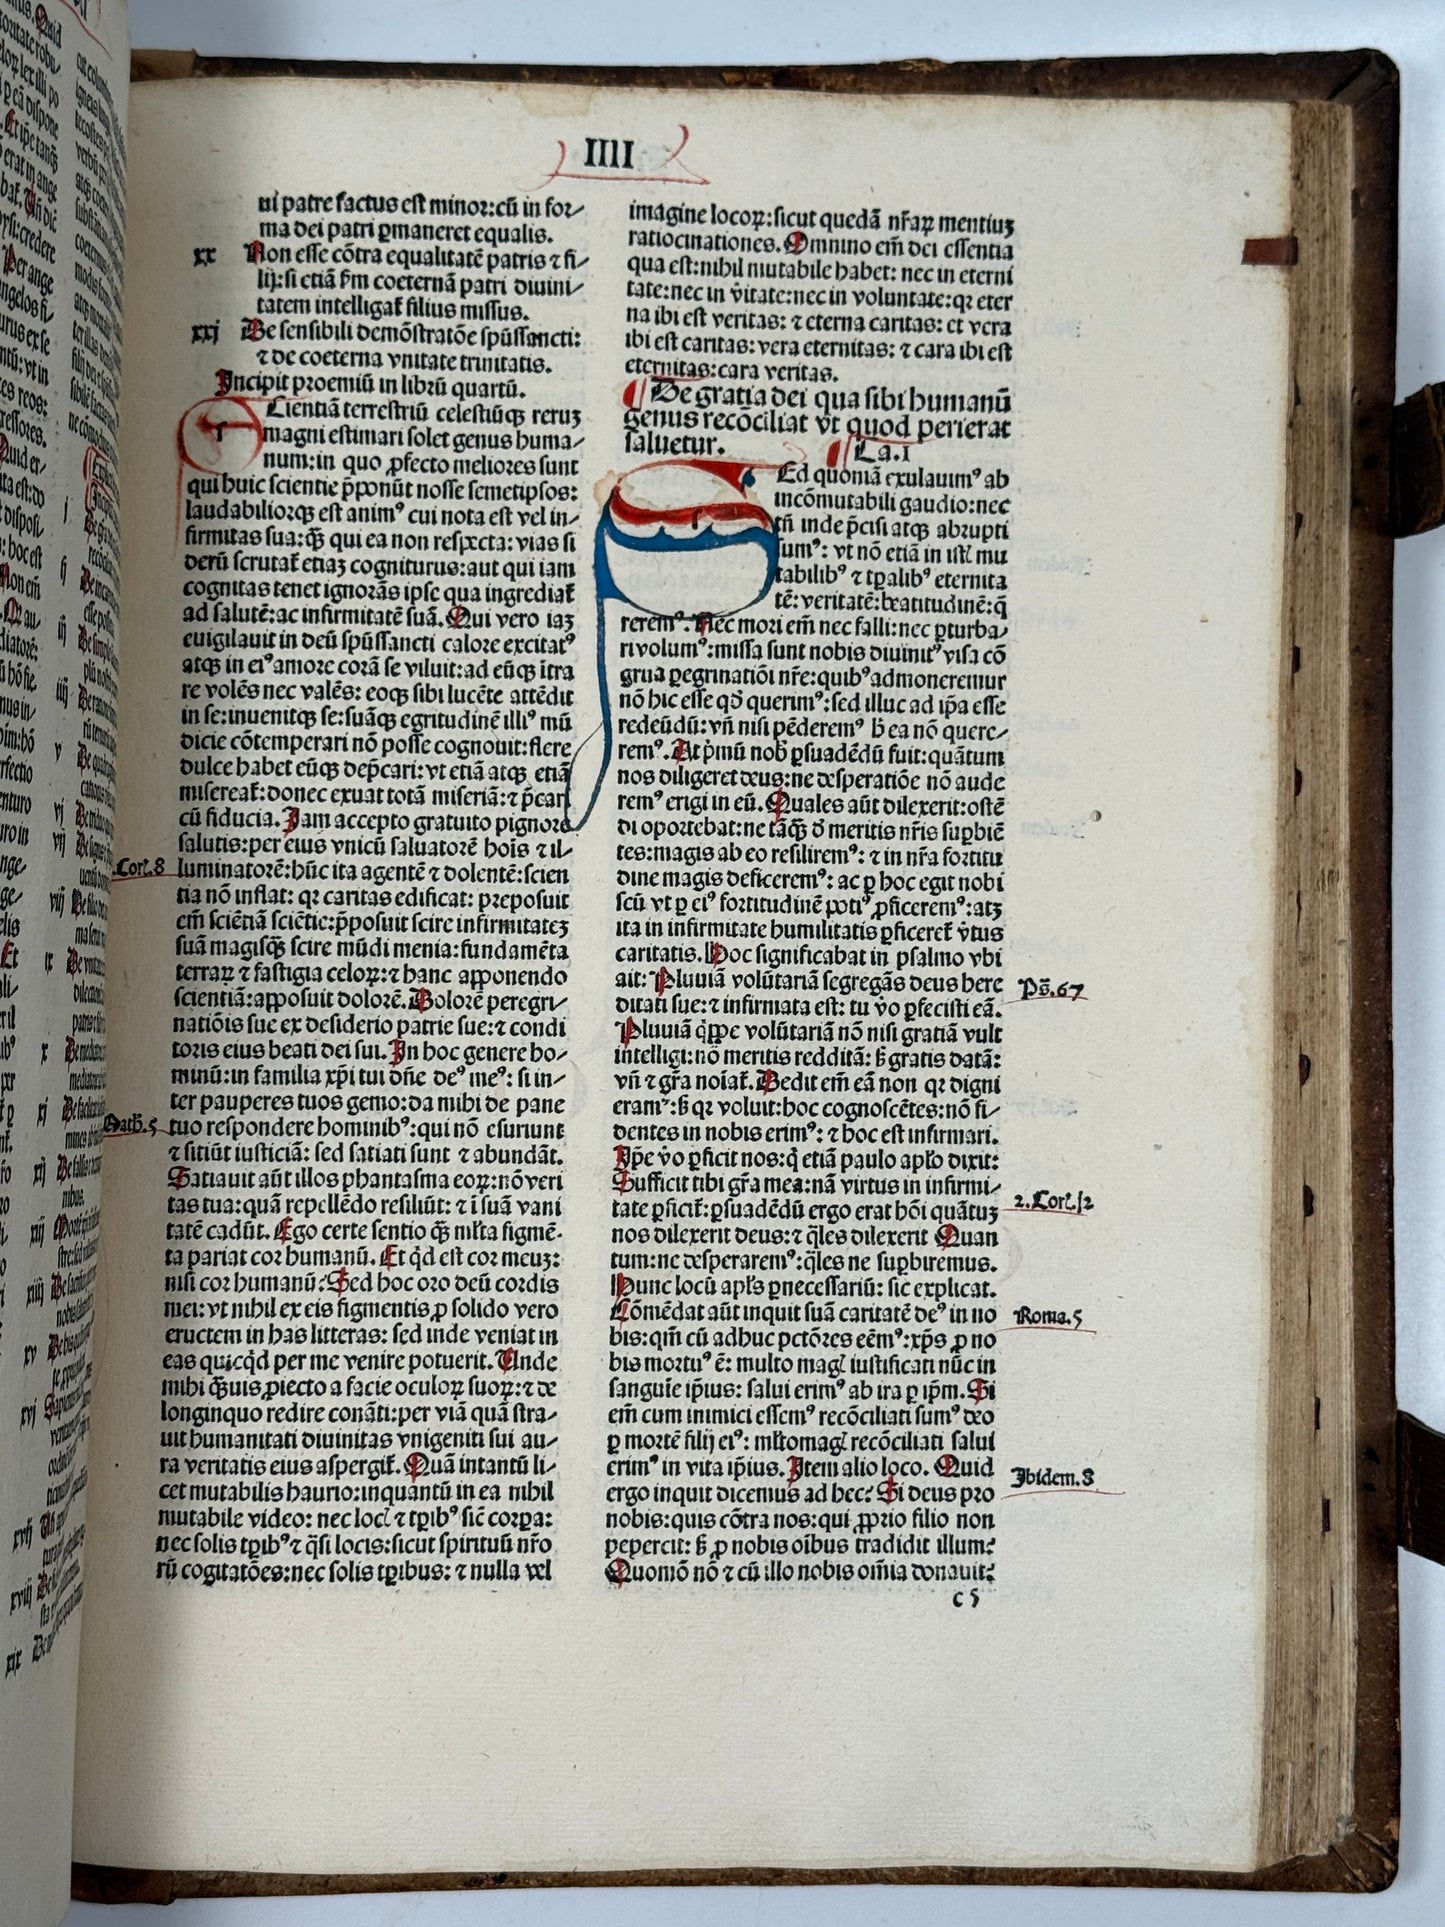 IIII
ui patre factus est minor: cū in for⸗
ma dei patri ꝑmaneret equalis.
xx Non esse cōtra equalitatē patris ⁊ fi⸗
lij: si etiā ꝓm coeternā patri diuini⸗
tatem intelligat̄ filius missus.
xxj De sensibili demōstratōe spūssancti:
⁊ de coeterna vnitate trinitatis.
Incipit proemiū in librū quartū.
Scientiā terrestriū celestiūqꝫ reruꝫ
magni estimari solet genus huma⸗
num: in quo ꝓfecto meliores sunt
qui huic scientie p̄ponūt nosse semetipsos:
laudabiliorqꝫ est animꝰ cui nota est vel in⸗
firmitas sua: qꝫ̄ qui ea non respecta: vias si
derū scrutat̄ etiaꝫ cogniturus: aut qui iam
cognitas tenet ignorās ipse qua ingrediat̄
ad salutē: ac infirmitatē suā. Qui vero iaꝫ
euigilauit in deū spūssancti calore excitatꝰ
atqꝫ in eiꝰ amore corā se viluit: ad eūqꝫ ītra
re volēs nec valēs: eoqꝫ sibi lucēte attēdit
in se: inuenitqꝫ se: suāqꝫ egritudinē illiꝰ mū
dicie cōtemperari nō posse cognouit: flere
dulce habet eūqꝫ dep̄cari: vt etiā atqꝫ etiā
misereat̄: donec exuat totā miseriā: ⁊ p̄cari
cū fiducia. Jam accepto gratuito pignore
salutis: per eius vnicū saluatorē hois ⁊ il⸗
.Cor̄. 8 luminatorē: hūc ita agentē ⁊ dolentē: scien
tia nō inflat: qꝛ caritas edificat: preposuit
em̄ sciētiā sciētie: p̄posuit scire infirmitateꝫ
suā magisqꝫ̄ scire mūdi menia: fundamēta
terraꝝ ⁊ fastigia celoꝝ: ⁊ hanc apponendo
scientiā: apposuit dolorē. Dolorē peregri⸗
natiōis sue ex desiderio patrie sue: ⁊ condi
toris eius beati dei sui. In hoc genere ho⸗
minū: in familia xp̄i tui dn̄e deꝰ meꝰ: si in⸗
ter pauperes tuos gemo: da mihi de pane
Math̄. 5 tuo respondere hominibꝰ: qui nō esuriunt
⁊ sitiūt iusticiā: sed satiati sunt ⁊ abundāt.
Satiauit aūt illos phantasma eoꝝ: nō veri
tas tua: quā repellēdo resiliūt: ⁊ ī suā vani
tatē cadūt. Ego certe sentio qꝫ̄ ml̄ta figmē⸗
ta pariat cor humanū. Et qd̄ est cor meuꝫ:
nisi cor humanū? Sed hoc oro deū cordis
mei: vt nihil ex eis figmentis ꝓ solido vero
eructem in has litteras: sed inde veniat in
eas quicqd̄ per me venire potuerit. Unde
mihi qꝫ̄uis ꝓiecto a facie oculoꝝ suoꝝ: ⁊ de
longinquo redire conāti: per viā quā stra⸗
uit humanitati diuinitas vnigeniti sui au⸗
ra veritatis eius aspergit̄. Quā intantū li⸗
cet mutabilis haurio: inquantū in ea nihil
mutabile video: nec locꝭ ⁊ tꝑibꝰ sic̄ corꝑa:
nec solis tꝑibꝰ ⁊ qͣsi locis: sicut spirituū nr̄o
rū cogitatōes: nec solis tꝑibus: ⁊ nulla vel
imagine locoꝝ: sicut quedā nr̄aꝝ mentiuꝫ
ratiocinationes. Omnino em̄ dei essentia
qua est: nihil mutabile habet: nec in eterni
tate: nec in v̄itate: nec in voluntate: qꝛ eter
na ibi est veritas: ⁊ eterna caritas: et vera
ibi est caritas: vera eternitas: ⁊ cara ibi est
eternitas: cara veritas.
De gratia dei qua sibi humanū
genus recōciliat vt quod perierat
saluetur. Ca. I
Sed quoniā exulauimꝰ ab
incōmutabili gaudio: nec
tn̄ inde p̄cisi atqꝫ abrupti
sumꝰ: vt nō etiā in istꝭ mu
tabilibꝰ ⁊ tꝑalibꝰ eternita
tē: veritatē: beatitudinē: q̄
reremꝰ. Nec mori em̄ nec falli: nec ꝑturba⸗
ri volumꝰ: missa sunt nobis diuinitꝰ visa cō
grua ꝑegrinatiōi nr̄e: quibꝰ admoneremur
nō hic esse qd̄ querimꝰ: sed illuc ad ip̄a esse
redeūdū: vn̄ nisi pēderemꝰ h̄ ea nō quere⸗
remꝰ. At p̄mū nob̄ ꝑsuadēdū fuit: quātum
nos diligeret deus: ne desperatiōe nō aude
remꝰ erigi in eū. Quales aūt dilexerit: ostē
di oportebat: ne tāqꝫ̄ d̄ meritis nr̄is suꝑbiē
tes: magis ab eo resiliremꝰ: ⁊ in nr̄a fortitu
dine magis deficeremꝰ: ac ꝑ hoc egit nobi
scū vt ꝑ eiꝰ fortitudinē potiꝰ ꝓficeremꝰ: atqꝫ
ita in infirmitate humilitatis ꝑficeret̄ v̄tus
caritatis. Hoc significabat in psalmo vbi
ait: Pluuiā volūtariā segregās deus here Ps̄. 67
ditati sue: ⁊ infirmata est: tu v̄o ꝑfecisti eā.
Pluuiā qͥppe volūtariā nō nisi gratiā vult
intelligi: nō meritis redditā: ß gratis datā:
vn̄ ⁊ gr̄a noīat̄. Dedit em̄ eā non qꝛ digni
eramꝰ: ß qꝛ voluit: hoc cognoscētes: nō fi⸗
dentes in nobis erimꝰ: ⁊ hoc est infirmari.
Ip̄e v̄o ꝑficit nos: q̄ etiā paulo apl̄o dixit:
Sufficit tibi gr̄a mea: nā virtus in infirmi⸗ 2. Cor̄. 12
tate ꝑficit̄: ꝑsuadēdū ergo erat hōi quātuꝫ
nos dilexerit deus: ⁊ qͣles dilexerit Quan
tum: ne desperaremꝰ: qͣles ne suꝑbiremus.
Hunc locū apl̄s ꝑnecessariū: sic explicat.
Cōmēdat aūt inquit suā caritatē deꝰ in no Roma. 5
bis: qm̄ cū adhuc pctōres eēmꝰ: xp̄s ꝓ no
bis mortuꝰ ē: multo magꝭ iustificati nūc in
sanguie ip̄ius: salui erimꝰ ab ira ꝑ ip̄m. Si
em̄ cum inimici essemꝰ recōciliati sumꝰ deo
ꝑ mortē filij eiꝰ: ml̄to magꝭ recōciliati salui
erimꝰ in vita ip̄ius. Item alio loco. Quid Ibidem. 8
ergo inquit dicemus ad hec? Si deus pro
nobis: quis cōtra nos: qui ꝓprio filio non
pepercit: ß ꝓ nobis oībus tradidit illum?
Quomō nō ⁊ cū illo nobis om̄ia donauit?
c 5